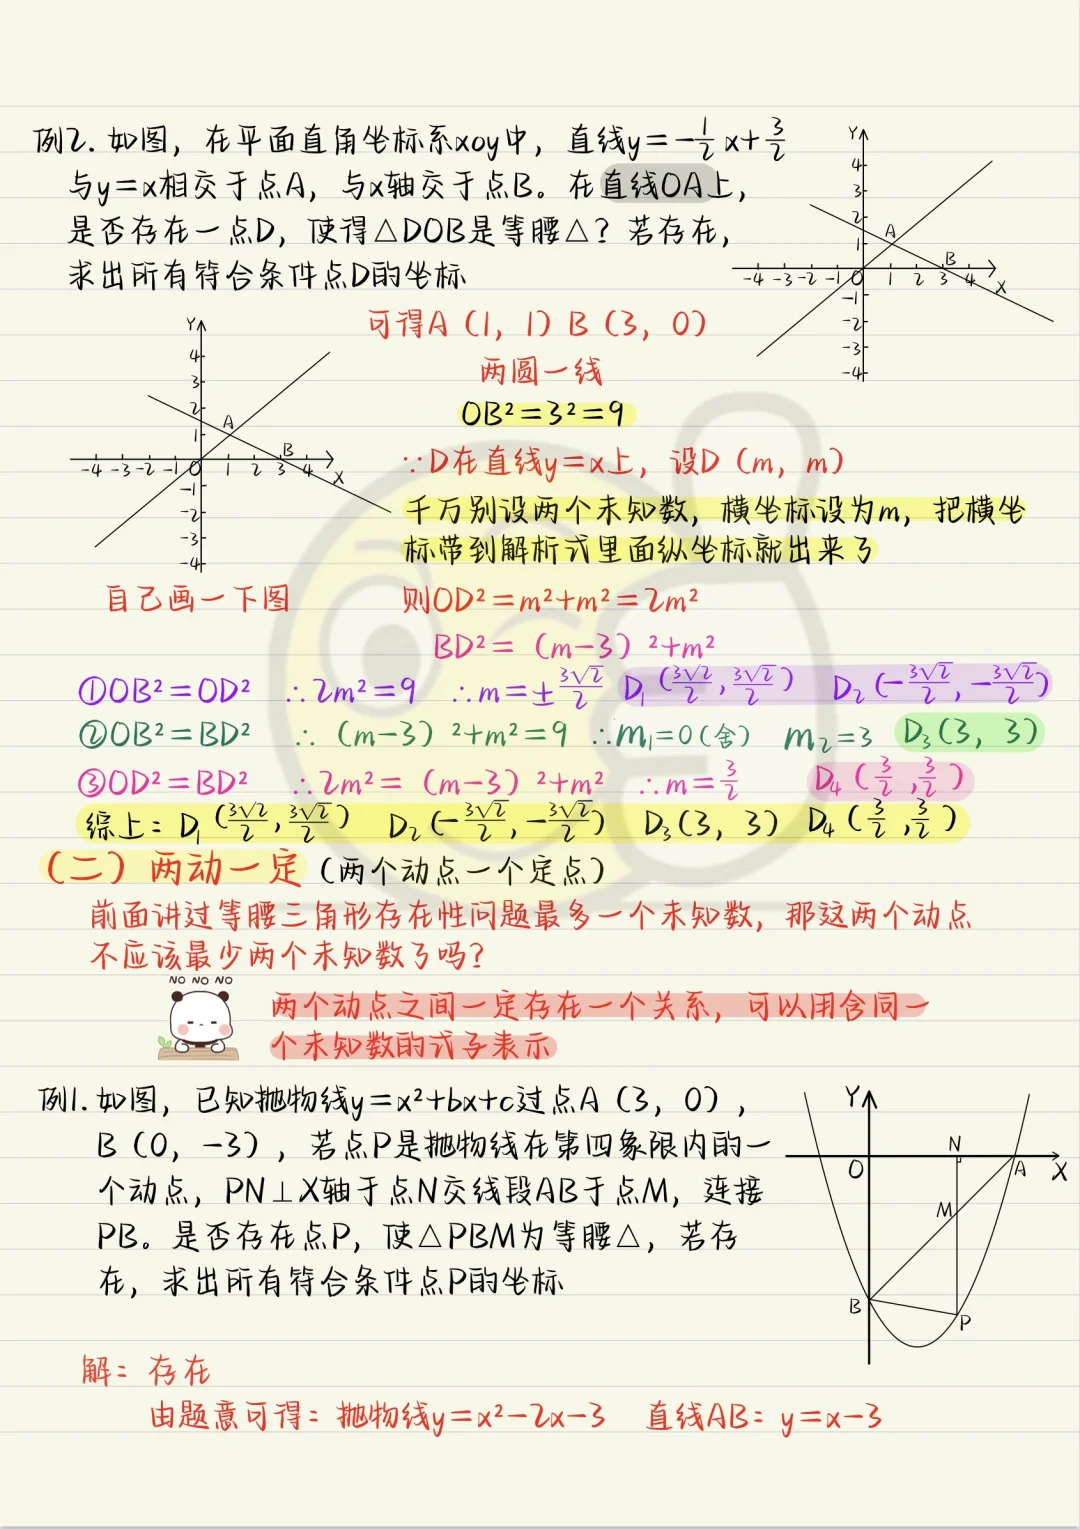 例2. 如图，在平面直角坐标系xoy中，直线y=-1/2 x+3/2
与y=x相交于点A，与x轴交于点B。在直线OA上，
是否存在一点D，使得△DOB是等腰△？若存在，
求出所有符合条件点D的坐标
Y
4
3
2
1
A
B
-4 -3 -2 -1 O 1 2 3 4 X
-1
-2
-3
-4
可得A（1，1）B（3，0）
两圆一线
OB²=3²=9
∵D在直线y=x上，设D（m，m）
千万别设两个未知数，横坐标设为m，把横坐
标带到解析式里面纵坐标就出来了
Y
4
3
2
1
A
B
-4 -3 -2 -1 O 1 2 3 4 X
-1
-2
-3
-4
自己画一下图
则OD²=m²+m²=2m²
BD²=（m-3）²+m²
①OB²=OD² ∴2m²=9 ∴m=±3√2/2 D₁(3√2/2,3√2/2) D₂(-3√2/2,-3√2/2)
②OB²=BD² ∴（m-3）²+m²=9 ∴m₁=0(舍) m₂=3 D₃(3，3)
③OD²=BD² ∴2m²=（m-3）²+m² ∴m=3/2 D₄(3/2,3/2)
综上：D₁(3√2/2,3√2/2) D₂(-3√2/2,-3√2/2) D₃(3，3) D₄(3/2,3/2)
（二）两动一定（两个动点一个定点）
前面讲过等腰三角形存在性问题最多一个未知数，那这两个动点
不应该最少两个未知数了吗？
NO NO NO
两个动点之间一定存在一个关系，可以用含同一
个未知数的式子表示
例1. 如图，已知抛物线y=x²+bx+c过点A（3，0），
B（0，-3），若点P是抛物线在第四象限内的一
个动点，PN⊥X轴于点N交线段AB于点M，连接
PB。是否存在点P，使△PBM为等腰△，若存
在，求出所有符合条件点P的坐标
Y
N
O
A
X
M
B
P
解：存在
由题意可得：抛物线y=x²-2x-3 直线AB：y=x-3